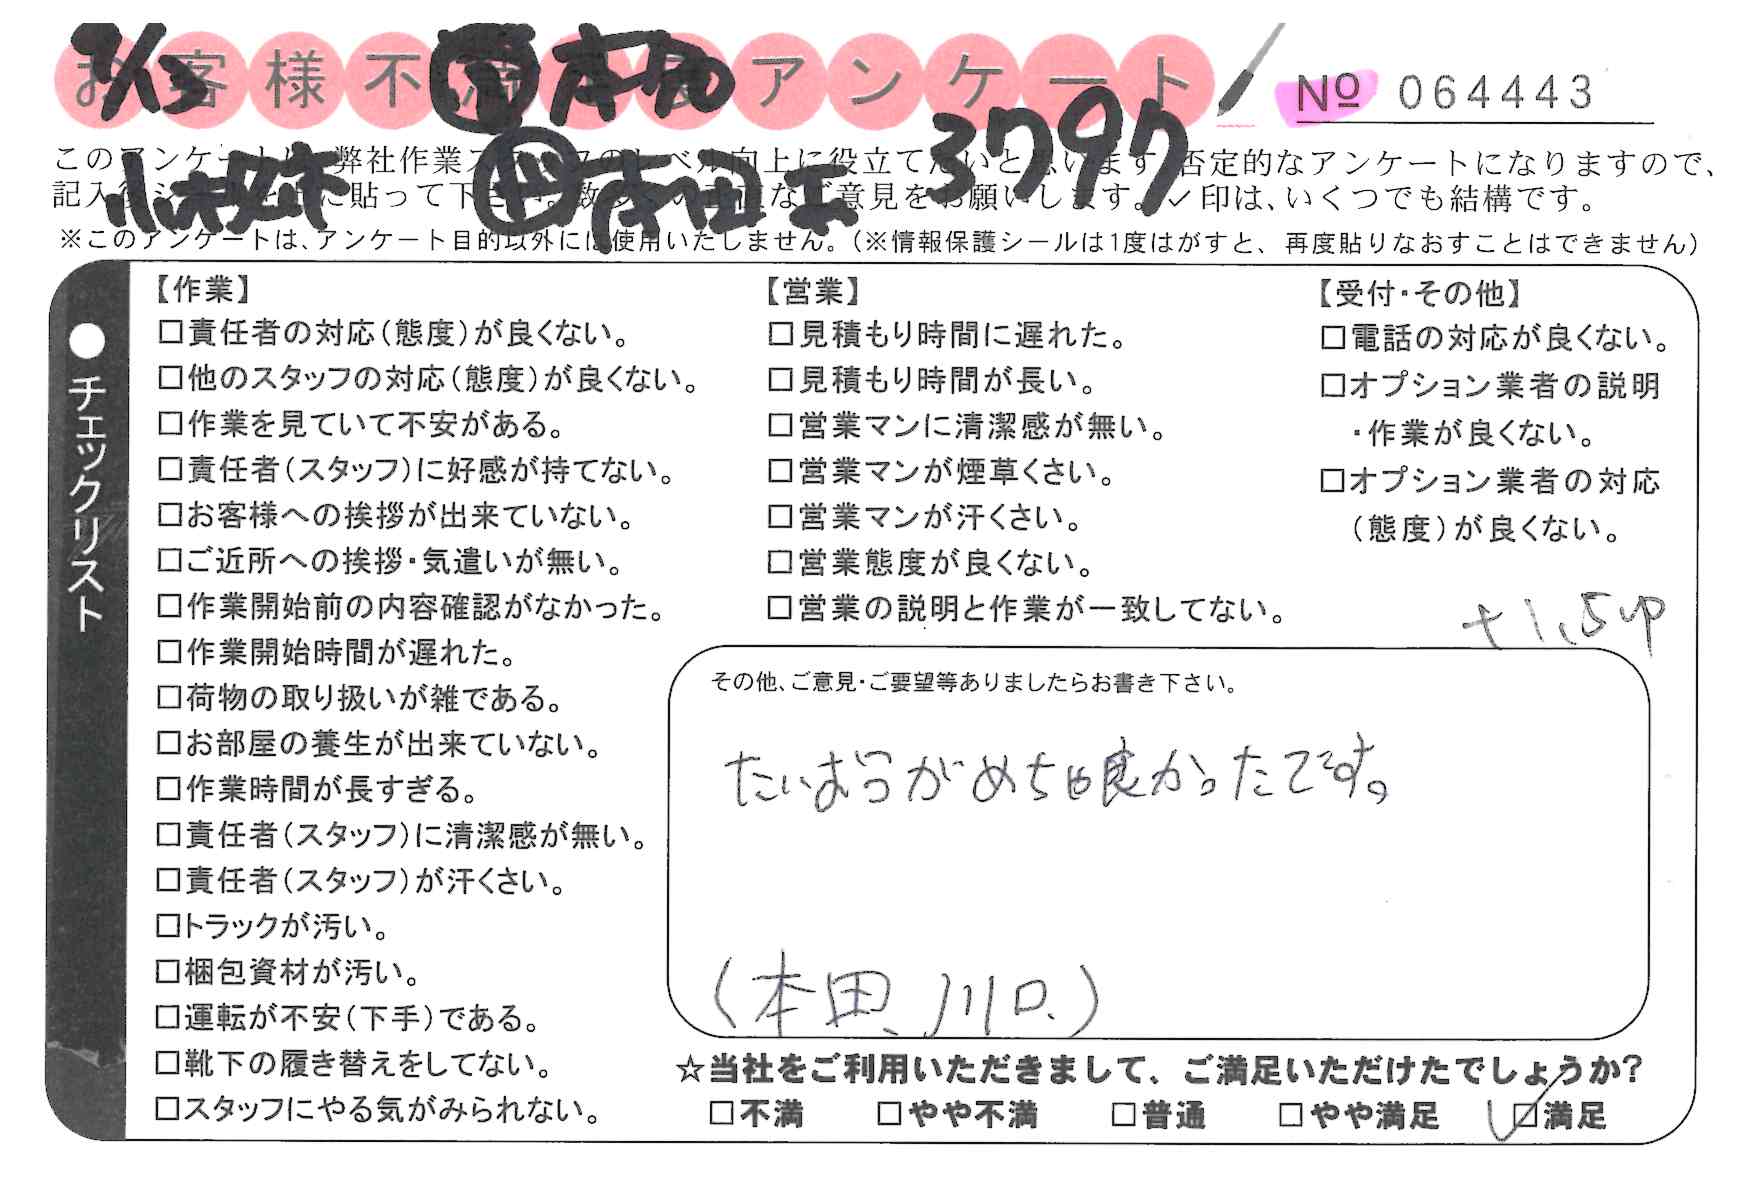 お客様不満足度アンケート
No 064443
3797
このアンケートは、弊社作業スタッフのレベル向上に役立てたいと思います。否定的なアンケートになりますので、
記入後シールを上に貼って下さい。数多くの正直なご意見をお願いします。✓印は、いくつでも結構です。
※このアンケートは、アンケート目的以外には使用いたしません。(※情報保護シールは1度はがすと、再度貼りなおすことはできません)
●チェックリスト
【作業】
□責任者の対応(態度)が良くない。
□他のスタッフの対応(態度)が良くない。
□作業を見ていて不安がある。
□責任者(スタッフ)に好感が持てない。
□お客様への挨拶が出来ていない。
□ご近所への挨拶・気遣いが無い。
□作業開始前の内容確認がなかった。
□作業開始時間が遅れた。
□荷物の取り扱いが雑である。
□お部屋の養生が出来ていない。
□作業時間が長すぎる。
□責任者(スタッフ)に清潔感が無い。
□責任者(スタッフ)が汗くさい。
□トラックが汚い。
□梱包資材が汚い。
□運転が不安(下手)である。
□靴下の履き替えをしてない。
□スタッフにやる気がみられない。
【営業】
□見積もり時間に遅れた。
□見積もり時間が長い。
□営業マンに清潔感が無い。
□営業マンが煙草くさい。
□営業マンが汗くさい。
□営業態度が良くない。
□営業の説明と作業が一致してない。
【受付・その他】
□電話の対応が良くない。
□オプション業者の説明
・作業が良くない。
□オプション業者の対応
(態度)が良くない。
+1.5up
その他、ご意見・ご要望等ありましたらお書き下さい。
たいおうがめちゃ良かったです。
(本田、川口、)
☆当社をご利用いただきまして、ご満足いただけたでしょうか?
□不満 □やや不満 □普通 □やや満足 ☑満足